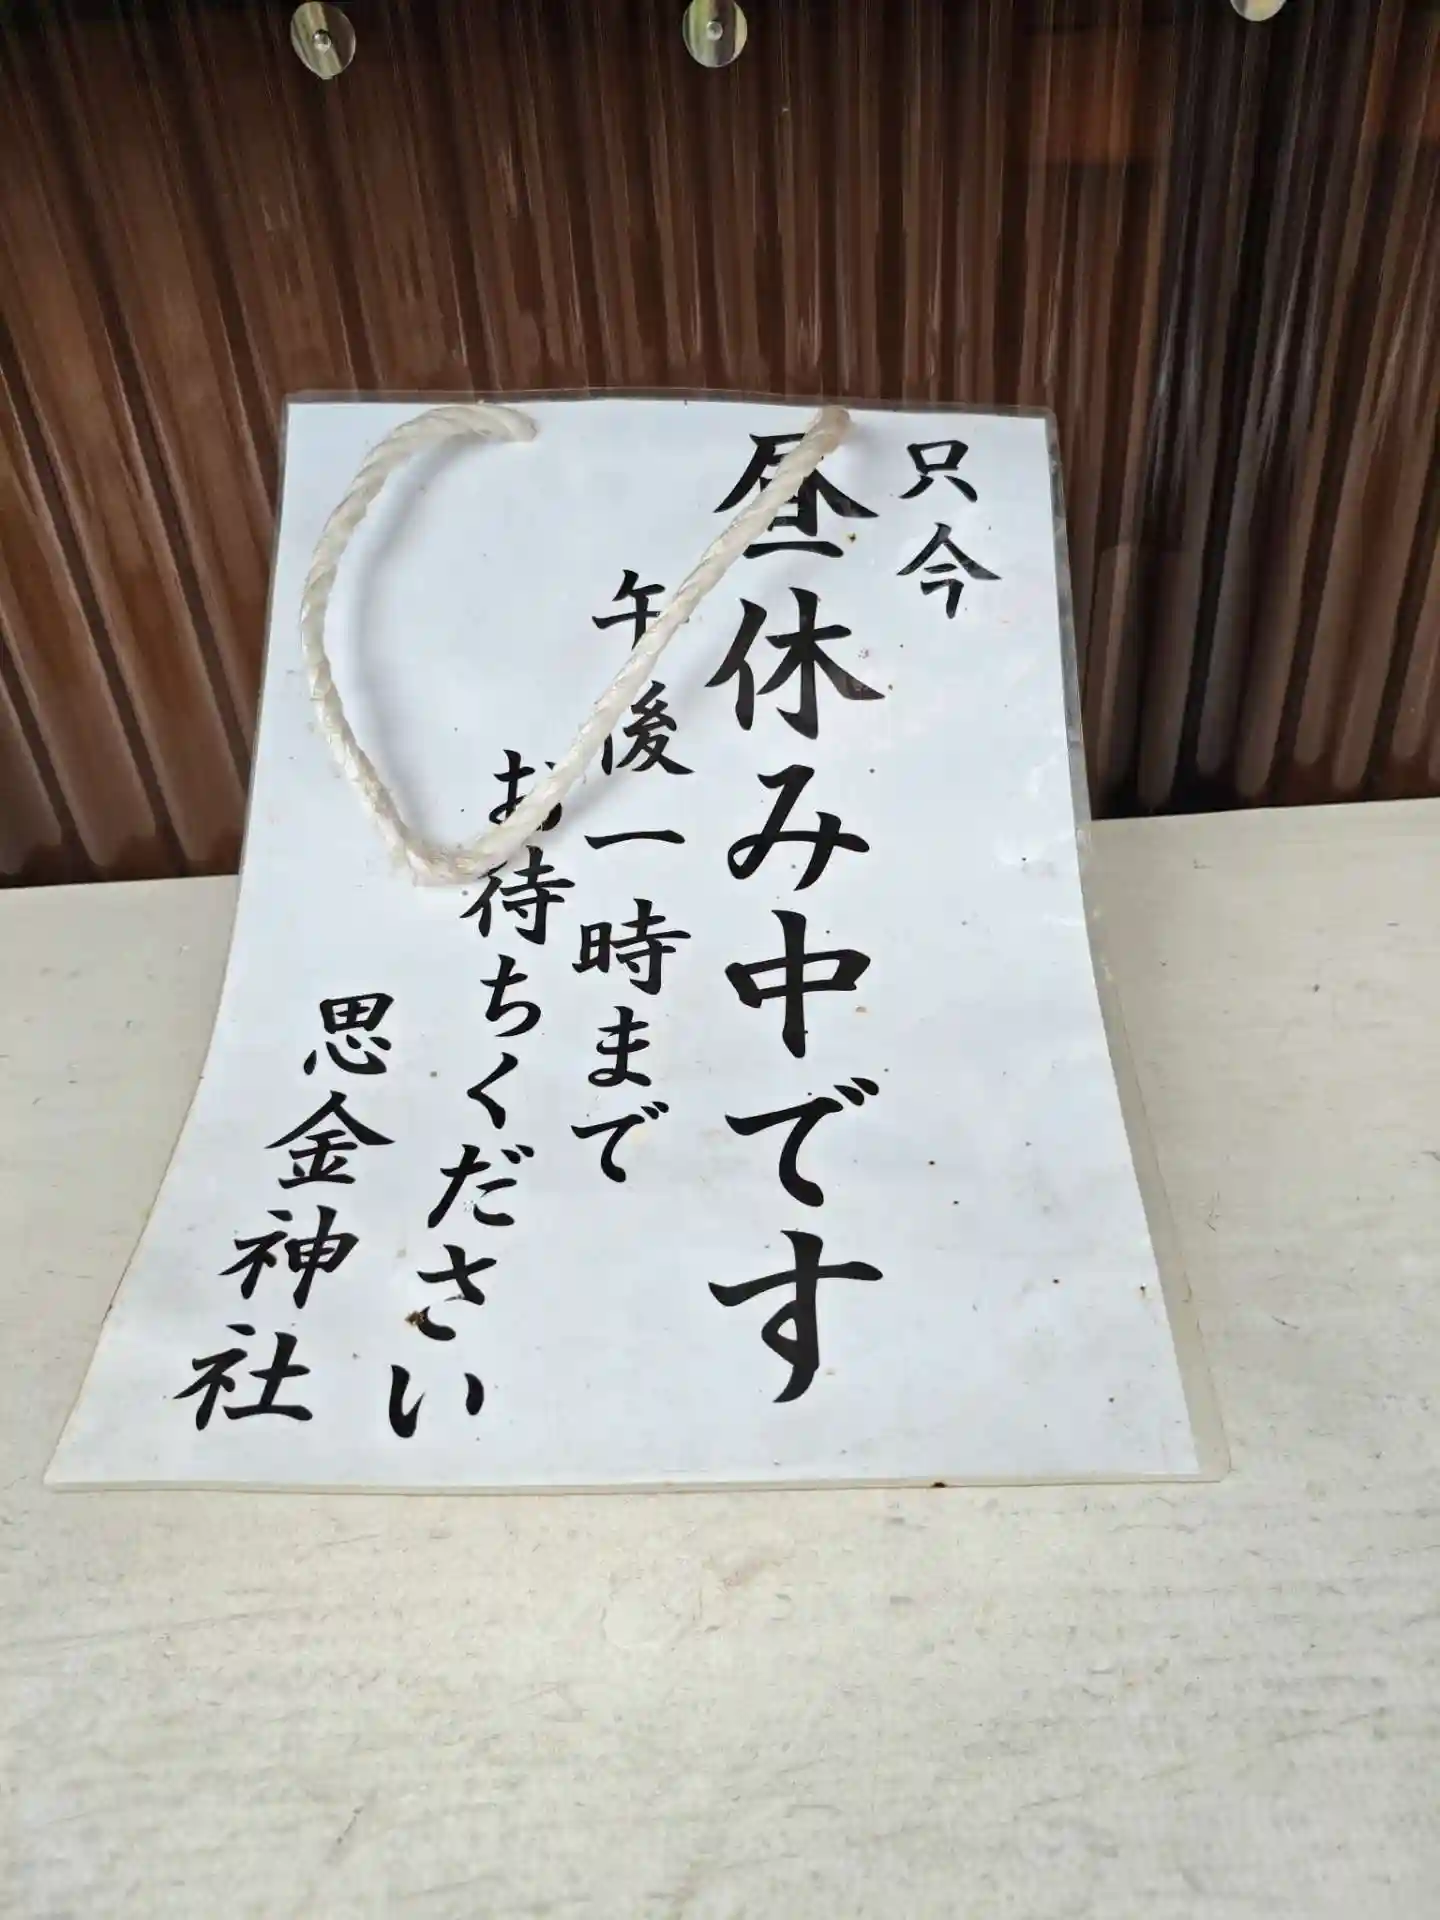 只今
昼休み中です
午後一時まで
お待ちください
思金神社